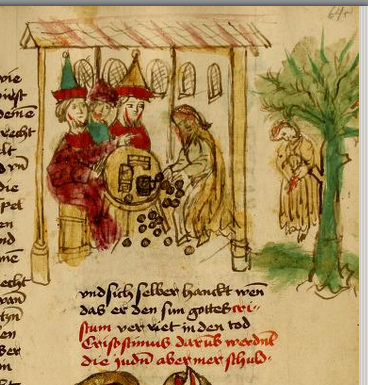 64r
wie
recht
die
en
nd
echt
van
vnd sich selber hanckt wen
das er den sun gottes cri-
stum ver riet in den tod
Crisostimus dar vb werdnt
die judn aber mer schuld-